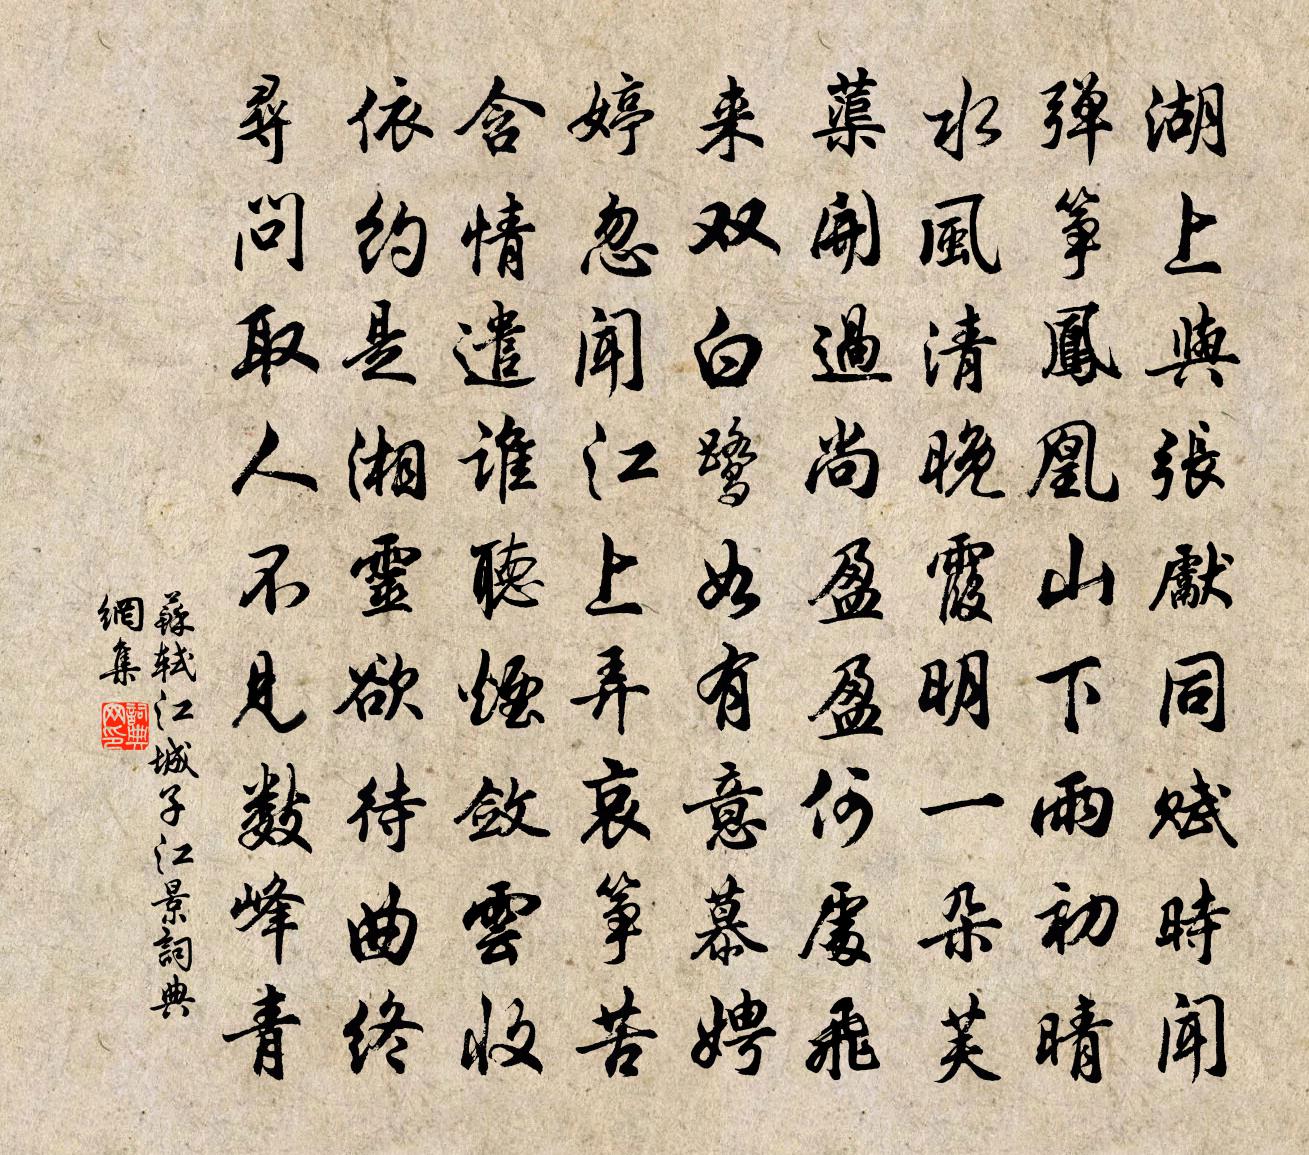 湖上與張獻同賦時聞
彈箏鳳凰山下雨初晴
水風清晚霞明一朵芙
蕖開過尚盈盈何處飛
来双白鷺如有意慕娉
婷忽聞江上弄哀箏苦
含情遣誰聽煙斂雲收
依約是湘靈欲待曲終
尋問取人不見數峰青
蘇軾江城子江景詞典
網集
詞典網印